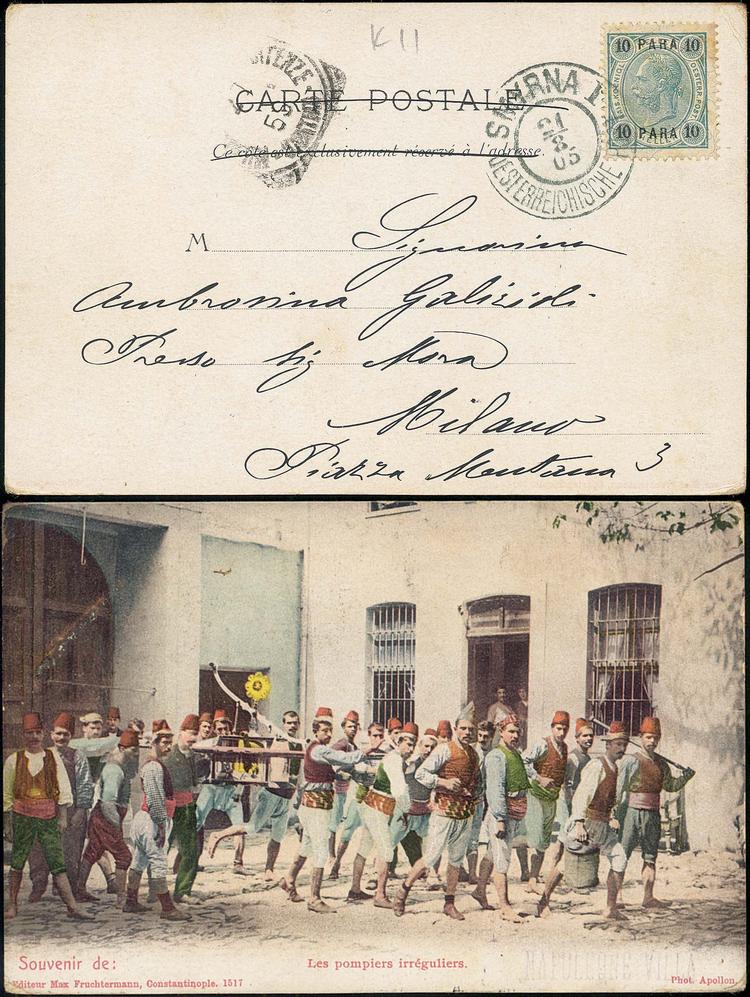 K11
CARTE POSTALE
Ce côté est exclusivement réservé à l'adresse.
SMYRNA I
21
8
05
OESTERREICHISCHE
10 PARA 10
10 PARA 10
M Signorina
Ambrosina Galizioli
Presso Sig Mora
Milano
Piazza Mentana 3
Souvenir de:
Les pompiers irréguliers.
NAPOLEONE VILLA
Editeur Max Fruchtermann, Constantinople. 1517
Phot. Apollon.